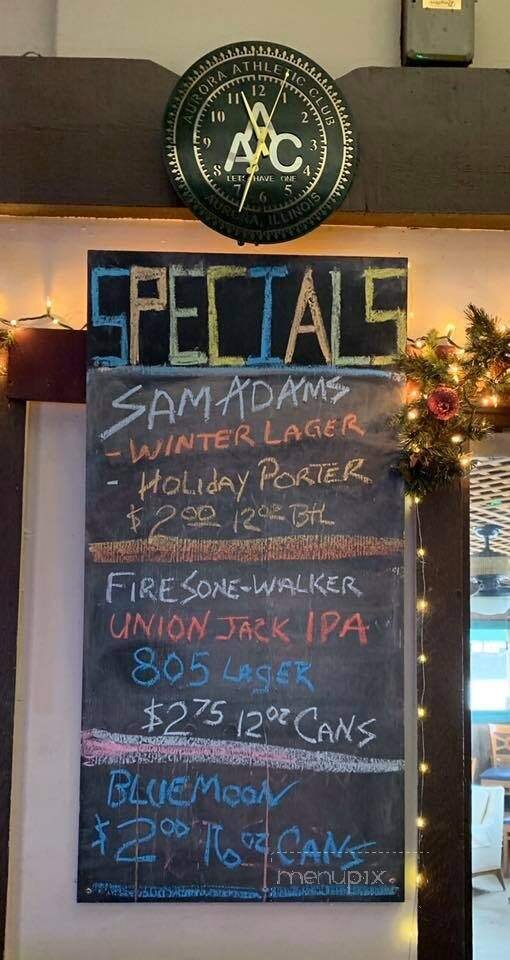 AURORA ATHLETIC CLUB
11 12 1
10 2
9 3
8 4
7 6 5
AAC
LETS HAVE ONE
AURORA, ILLINOIS
SPECIALS
SAM ADAMS
- WINTER LAGER
- HOLIDAY PORTER
$2.00 12oz BTL
FIRESONE-WALKER
UNION JACK IPA
805 LAGER
$2.75 12oz CANS
BLUEMOON
$2.00 16oz CANS
menupix